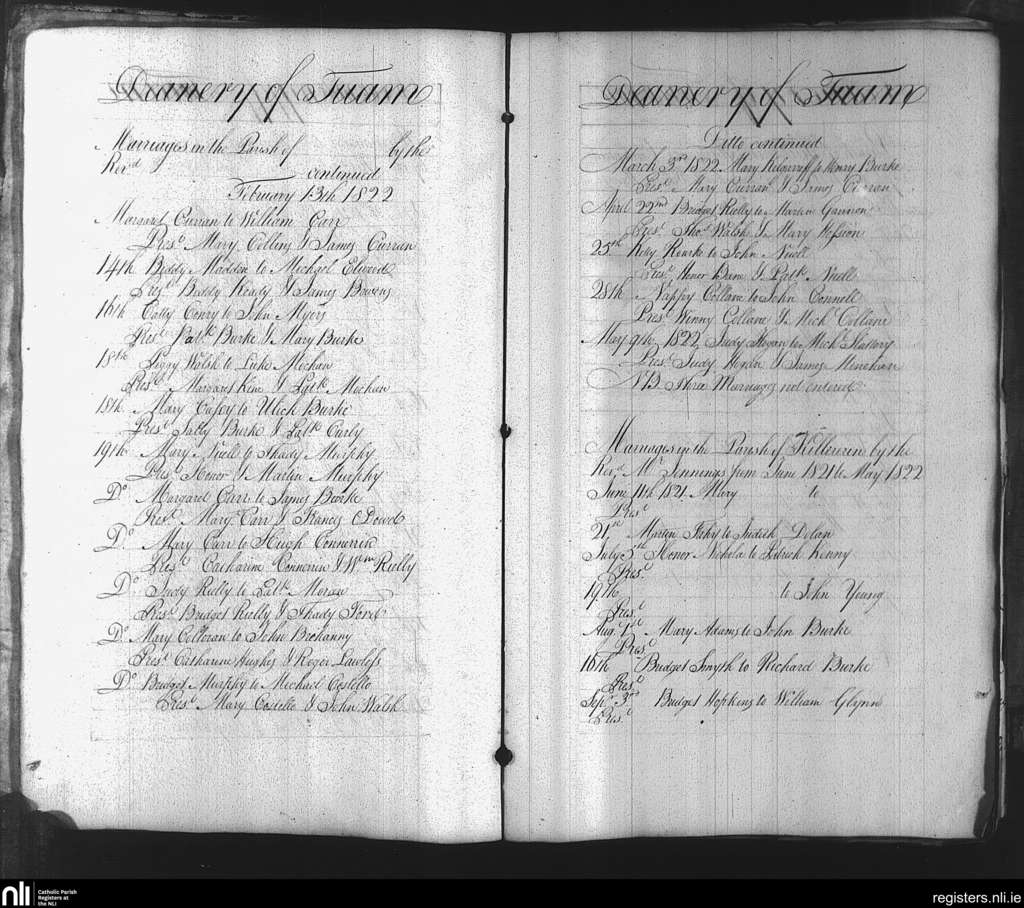 Deanery of Tuam
Marriages in the Parish of by the
Revd continued
February 13th 1822
Margaret Curran to William Carr
Prest Mary Collins & James Curran
14th Biddy Madden to Michael Elwood
Prest Biddy Keady & James Bowens
16th Catty Conry to John Myers
Prest Patk Burke & Mary Burke
18th Peggy Walsh to Luke Mechan
Prest Margaret Kine & Patk Mechan
18th Mary Casey to Ulick Burke
Prest Sally Burke & Patk Curly
19th Mary Niell to Thady Murphy
Prest Honor & Martin Murphy
Do Margaret Carr to James Bourke
Prest Mary Carr & Francis O'Dowd
Do Mary Carr to Hugh Connerin
Prest Catharine Connerin & Wm Rielly
Do Judy Rielly to Patk Moran
Prest Bridget Rielly & Thady Ford
Do Mary Colloran to John Brohanny
Prest Catharine Hughes & Roger Lawless
Do Bridget Murphy to Michael Costello
Prest Mary Costello & John Walsh
Deanery of Tuam
Ditto continued
March 3rd 1822 Mary Kilgarriff to Henry Burke
Prest Mary Curran & James Curran
April 22nd Bridget Rielly to Martin Gannon
Prest Thos Walsh & Mary Hession
25th Kitty Rourke to John Niell
Prest Honor & Patk Niell
28th Nappy Collane to John Connell
Prest Winny Collane & Mich Collane
May 9th 1822 Judy Hogan to Mich Slattery
Prest Judy Hogan & James Monahan
NB Three Marriages not entered
Marriages in the Parish of Killererin by the
Revd Mr Jennings from June 1821 to May 1822
June 11th 1821 Mary to
Prest
21st Martin Fahy to Judith Dolan
July 3rd Honor Nohola to Patrick Kenny
Prest
19th to John Young
Prest
Aug 1st Mary Adams to John Burke
Prest
16th Bridget Smyth to Richard Burke
Prest
Sepr 3rd Bridget Hopkins to William Glynn
Prest
nli Catholic Parish
Registers at
the NLI
registers.nli.ie